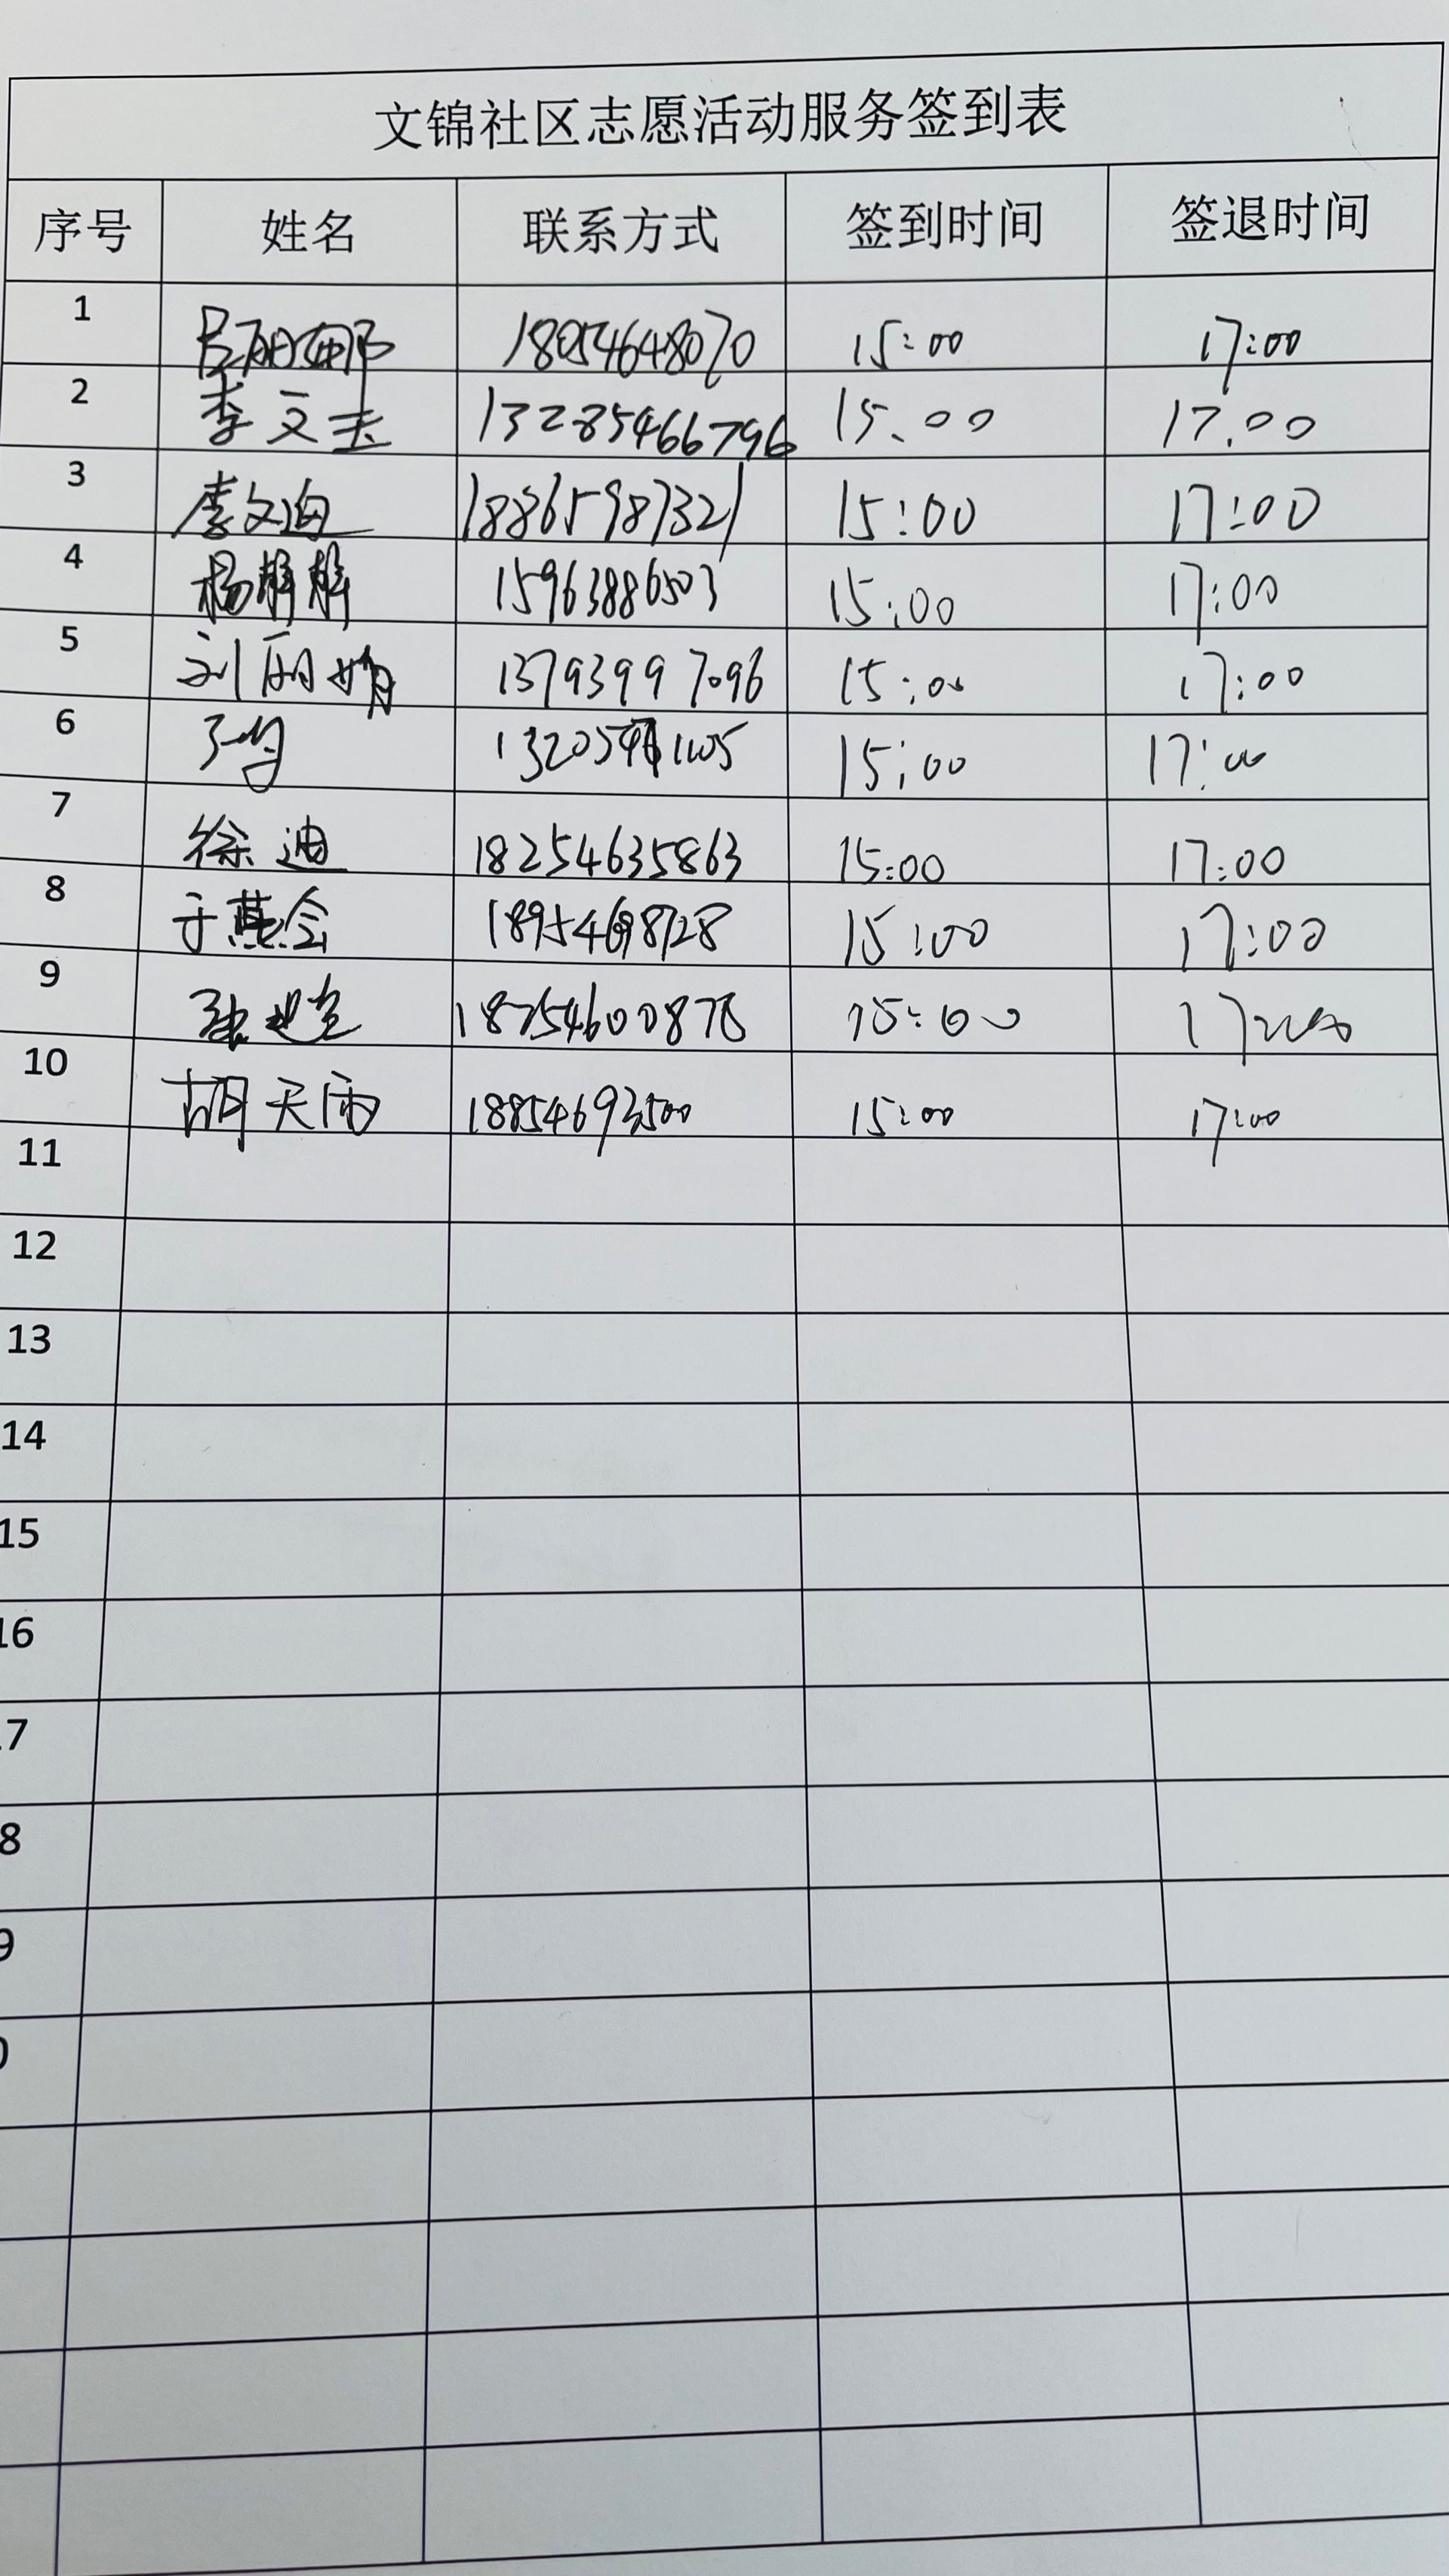 文锦社区志愿活动服务签到表
序号 姓名 联系方式 签到时间 签退时间
1 吕丽娜 18054648070 15:00 17:00
2 李文玉 13285466796 15.00 17.00
3 李文迪 18865987321 15:00 17:00
4 杨静静 15963886503 15:00 17:00
5 刘丽娟 13793997096 15:00 17:00
6 15:00 17:00
7 徐迪 18254635863 15:00 17:00
8 于燕会 15:00 17:00
9 18254600878 15:00
10 胡天雨 18854693500 15:00 17:00
11
12
13
14
15
16
7
8
9
0